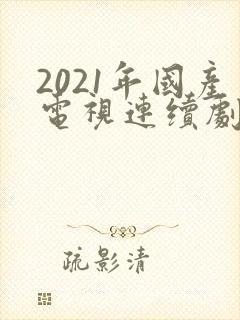 2021年國產
電視連續劇
疏影清